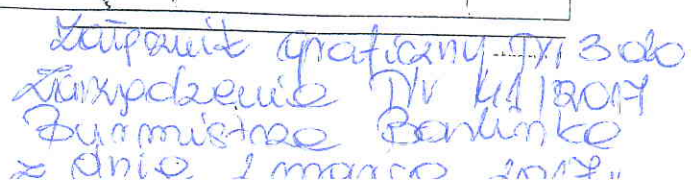 Załącznik graficzny Nr 3 do
Zarządzenia Nr 41/2017
Burmistrza Barlinka
z dnia 2 marca 2017r.